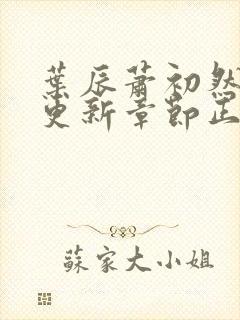 葉辰蕭初然
更新章節正
蘇家大小姐